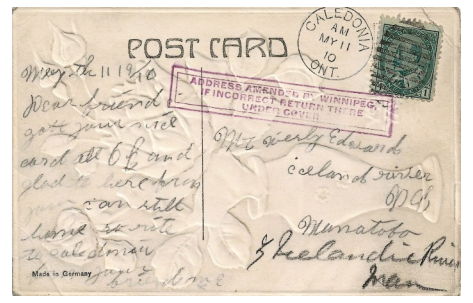 POST CARD
CALEDONIA
AM
MY 11
10
ONT.
1
ADDRESS AMENDED BY WINNIPEG,
IF INCORRECT RETURN THERE
UNDER COVER
May th 11 1910
Dear friend
got your nice
card all and
glad to her
your can still
home so rite
to Caledonia
your
Mr Edward
iceland river
Manatoba
Icelandic River
Man
Made in Germany